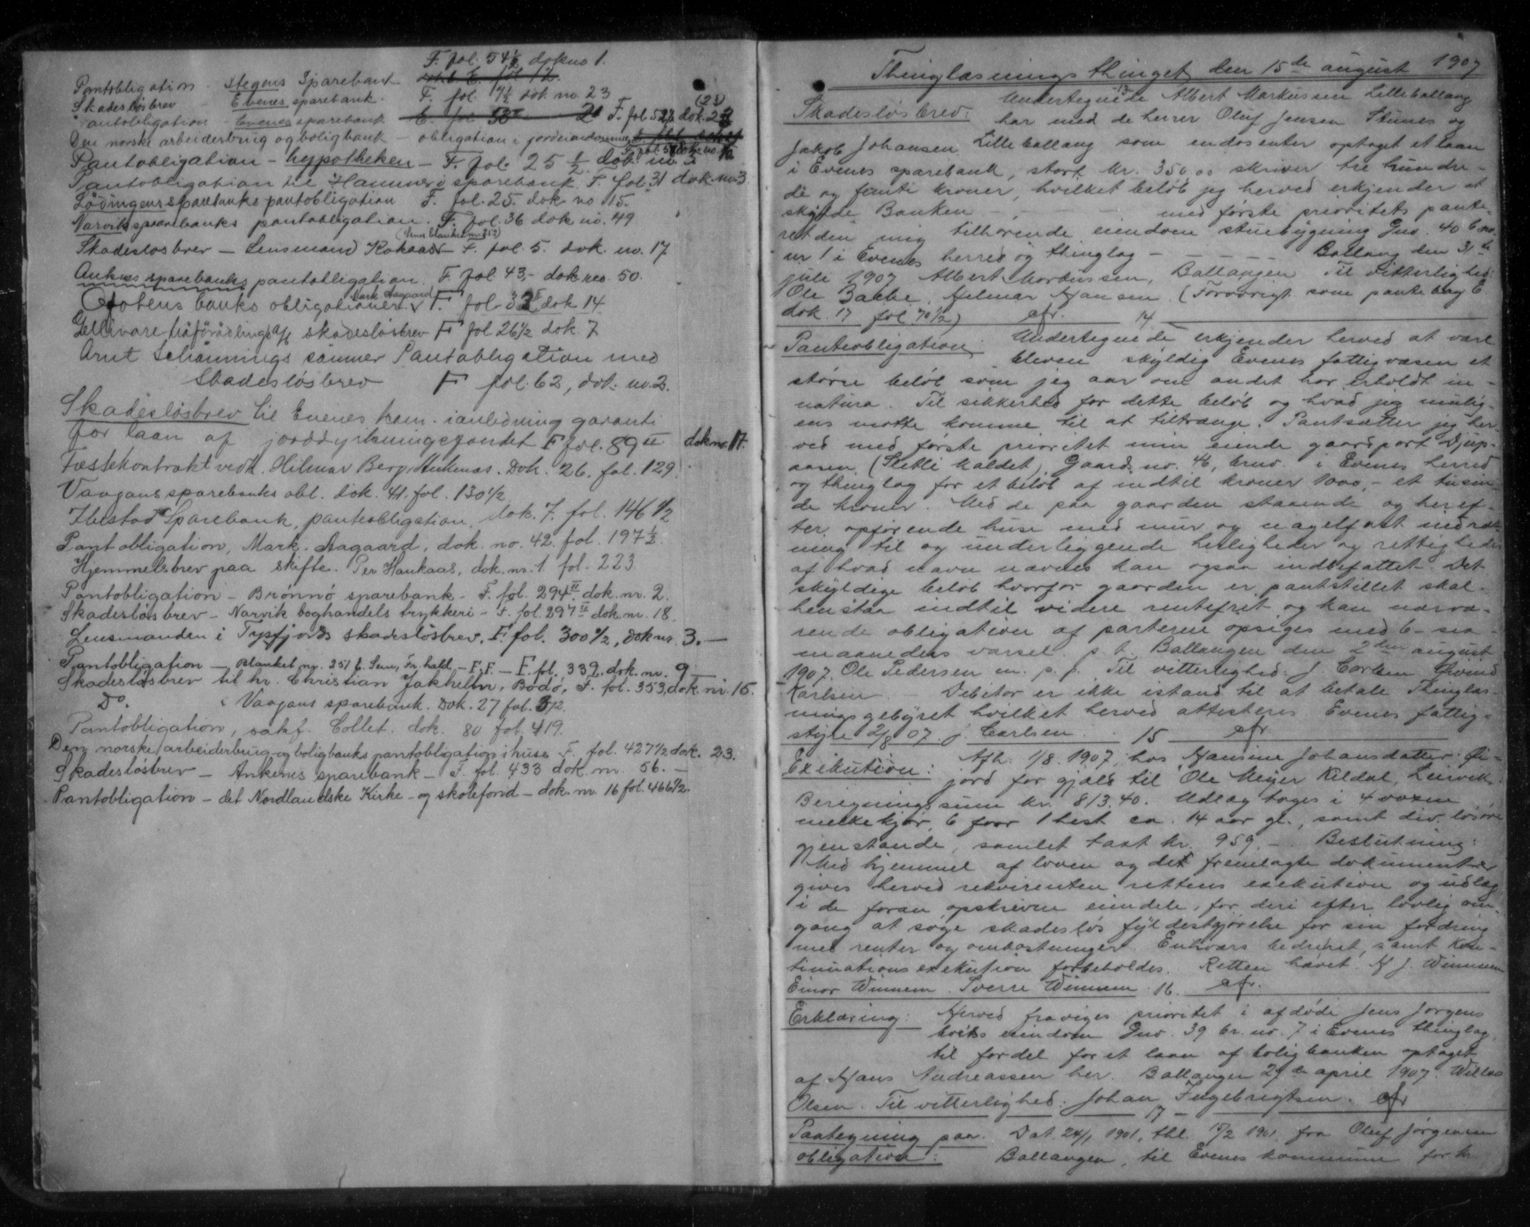 F. fol. 54½ dok no 1.
Pantobligation - Stegens Sparebank
Skadesløsbrev Evenes sparebank. F. fol. dok no 23
Pantobligation - Evenes sparebank F. fol 52½ dok. 22
Den norske arbeiderbrug og boligbank - obligation i
Pantobligation - hypotheken - F. fol. 25½ dok no 3
Pantobligation til Hammerø sparebank F. fol. 31 dok no 3
Lødingens sparebanks pantobligation F. fol. 25. dok no 15.
Narvik sparebanks pantobligation. F. fol. 36 dok no. 49
Skadesløsbrev - Lensmand Kokaas F. fol 5. dok. no. 17
Ankenes sparebanks pantobligation. F fol 43,- dok no. 50.
Ofotens banks obligationer F. fol. 32 dok 14.
Gellivare träförädlings a/b skadesløsbrev F fol 26½ dok. 7
Arnt Schiønnings sønner Pantobligation med
Skadesløsbrev F fol 62, dok. no. 2.
Skadesløsbrev til Evenes kom. i anledning garanti
for laan af jorddyrkningsfondet F fol. 89 dok no 17.
Fæstekontrakt vedk. Hilmar Berg, Ankenes. Dok. 26. fol. 129.
Vaagans sparebanks obl. dok. 41. fol. 130½
Ibestad Sparebank, panteobligation. dok. 7. fol. 146½
Pantobligation, Mark. Aagaard, dok. no. 42. fol. 197½.
Hjemmelsbrev paa skifte. Per Haukaas, dok. nr. 1 fol. 223
Pantobligation - Brønnø sparebank - F. fol. 294 dok. nr. 2.
Skadesløsbrev - Narvik boghandels trykkeri - F. fol 297 dok nr. 18.
Lensmanden i Tysfjords skadesløsbrev. F. fol. 300½, dok no 3. -
Pantobligation - blanket nr. 251 f. Sem, Fr.hald, - F. F - F. fl. 339. dok. nr. 9
Skadesløsbrev til hr. Christian Jakhelln, Bodø, F. fol. 353 dok nr. 15.
Do. Vaagans sparebank. Dok. 27 fol. 372.
Pantobligation, sakf. Collet. dok. 80 fol. 419.
Den norske arbeiderbrug og boligbanks pantobligation i huse F. fol. 427½ dok. 23.
Skadesløsbrev - Ankenes sparebank - F. fol. 433 dok nr. 56. -
Pantobligation - det Nordlandske Kirke - og skolefond - dok. nr. 16 fol. 466½.
Thinglæsningsthinget den 15de august 1907
Skadesløsbrev: Undertegnede Albert Markussen Lilleballang
har med de herrer Oluf Jensen Stunes og
Jakob Johansen Lilleballang som endosenter optaget et laan
i Evenes sparebank, stort kr. 350.00 skriver tre hundre-
de og femti kroner, hvilket beløb jeg herved erkjender at
skylde Banken - med første prioritets pante-
ret den mig tilhørende eiendom stuebygning Gno. 40 b.no.
nr 1 i Evenes herred og thinglag - Ballang den 31te
juli 1907 Albert Markussen, Ballangen Til vitterlighed
Ole Bakke. Hjelmar Hansen (Forøvrigt som pantebog E
dok. 17 fol 70½) afr. 14
Panteobligation: Undertegnede erkjender herved at være
bleven skyldig Evenes fattigvæsen et
større beløb som jeg aar om andet har erholdt in-
natura. Til sikkerhed for dette beløb og hvad jeg mulig-
ens matte komme til at tiltrænge. Pantsætter jeg her-
ved med første prioritet min eiende gaardpart Djup-
aasen, (Sletli kaldet) Gaards no. 46, bruno. i Evenes herred
og thinglag for et beløb af indtil kroner 1000,- et tusin-
de kroner. Med de paa gaarden staaende og heref-
ter opførende huse med mur og nagelfast indret-
ning til og underliggende herligheder og rettigheder
af hvad navn nævnes kan ogsaa indbefattet. Det
skyldige beløb hvorfor gaarden er pantstillet skal
henstaa indtil videre rentefrit og kan nærvæ-
rende obligation af parterne opsiges med 6- sex
maaneders varsel. p. t. Ballangen den 2den august
1907. Ole Pedersen m. p. p. Til vitterlighed: J Carlsen Øivind
Karlsen. Debitor er ikke istand til at betale Thinglæs-
ningsgebyret hvilket herved attesteres Evenes fattig-
styre 2/8 07. J Carlsen. 15 afr
Exekution: Afh. 1/8. 1907, hos Hansine Johansdatter, Ei-
jord for gjæld til Ole Meyer Kildal, Leirvik.
Beregningssum kr. 813.40. Udlæg tages i 4 voxne
melkekjør, 6 faar 1 hest ca. 14 aar gl., samt div. løsøre
gjenstande, samlet taxt kr. 959.- Beslutning:
Med hjemmel af loven og det fremlagte dokumenter
gives herved rekvirenten rettens exekution og udlæg
i de foran opskrevne eiendele, for deri efter lovlig om-
gang at søge skadesløs fyldestgjørelse for sin fordring
med renter og omkostninger. Enhvers bedreret, samt kon-
tinuations exekution forbeholdes. Retten hævet. H J. Winnem
Einar Winnem. Sverre Winnem 16. afr.
Erklæring: Herved fraviges prioritet i afdøde Jens Jørgens
boets eiendom Gno. 39 br. no. 7 i Evenes thinglag
til fordel for et laan af boligbanken optaget
af Hans Andreassen her. Ballangen 29de april 1907. Willas
Olsen. Til vitterlighed: Johan Ingebrigtsen. afr
17
Paategning paa Dat. 24/1 1901, thl. 17/2 1901 fra Oluf Jørgensen
obligation: Ballangen, til Evenes kommune for kr